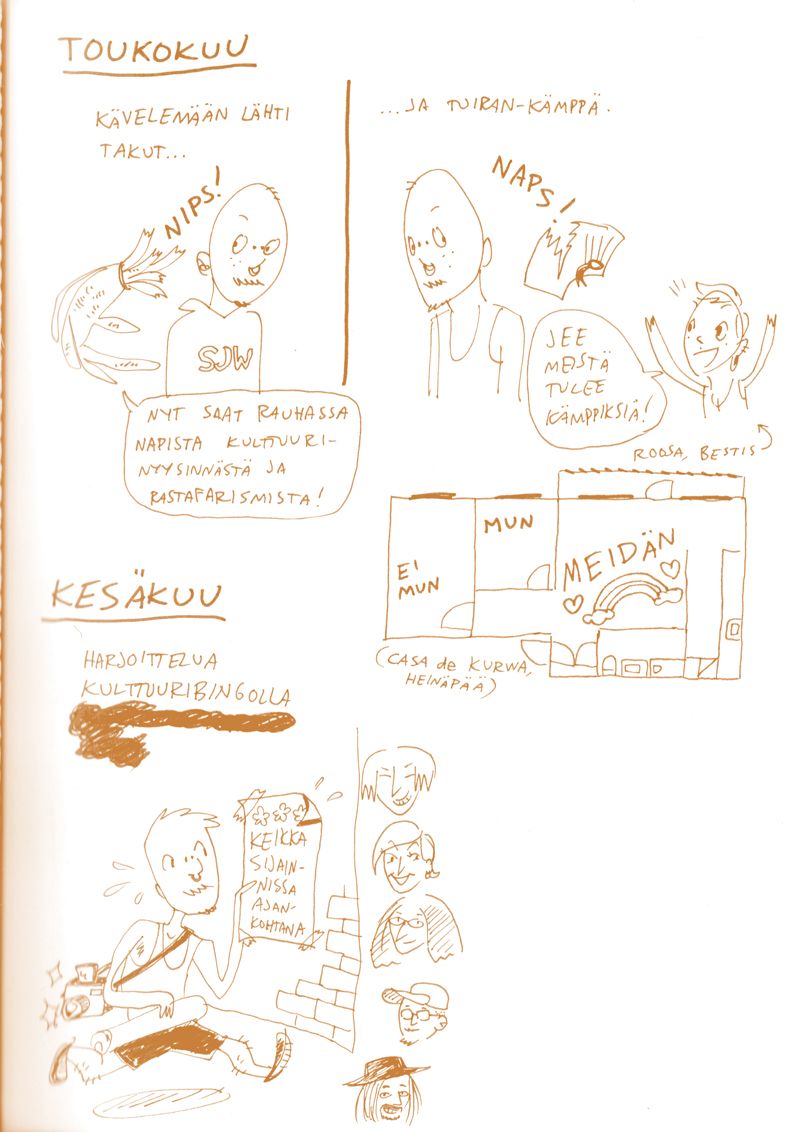 TOUKOKUU
KÄVELEMÄÄN LÄHTI
TAKUT...
NIPS!
SJW
NYT SAAT RAUHASSA
NAPISTA KULTTUURI-
NYYSINNÄSTÄ JA
RASTAFARISMISTA!
...JA TUIRAN-KÄMPPÄ.
NAPS!
JEE
MEISTÄ
TULEE
KÄMPPIKSIÄ!
ROOSA, BESTIS
EI
MUN
MUN
MEIDÄN
(CASA de KURWA,
HEINÄPÄÄ)
KESÄKUU
HARJOITTELUA
KULTTUURIBINGOLLA
KEIKKA
SIJAIN-
NISSA
AJAN-
KOHTANA